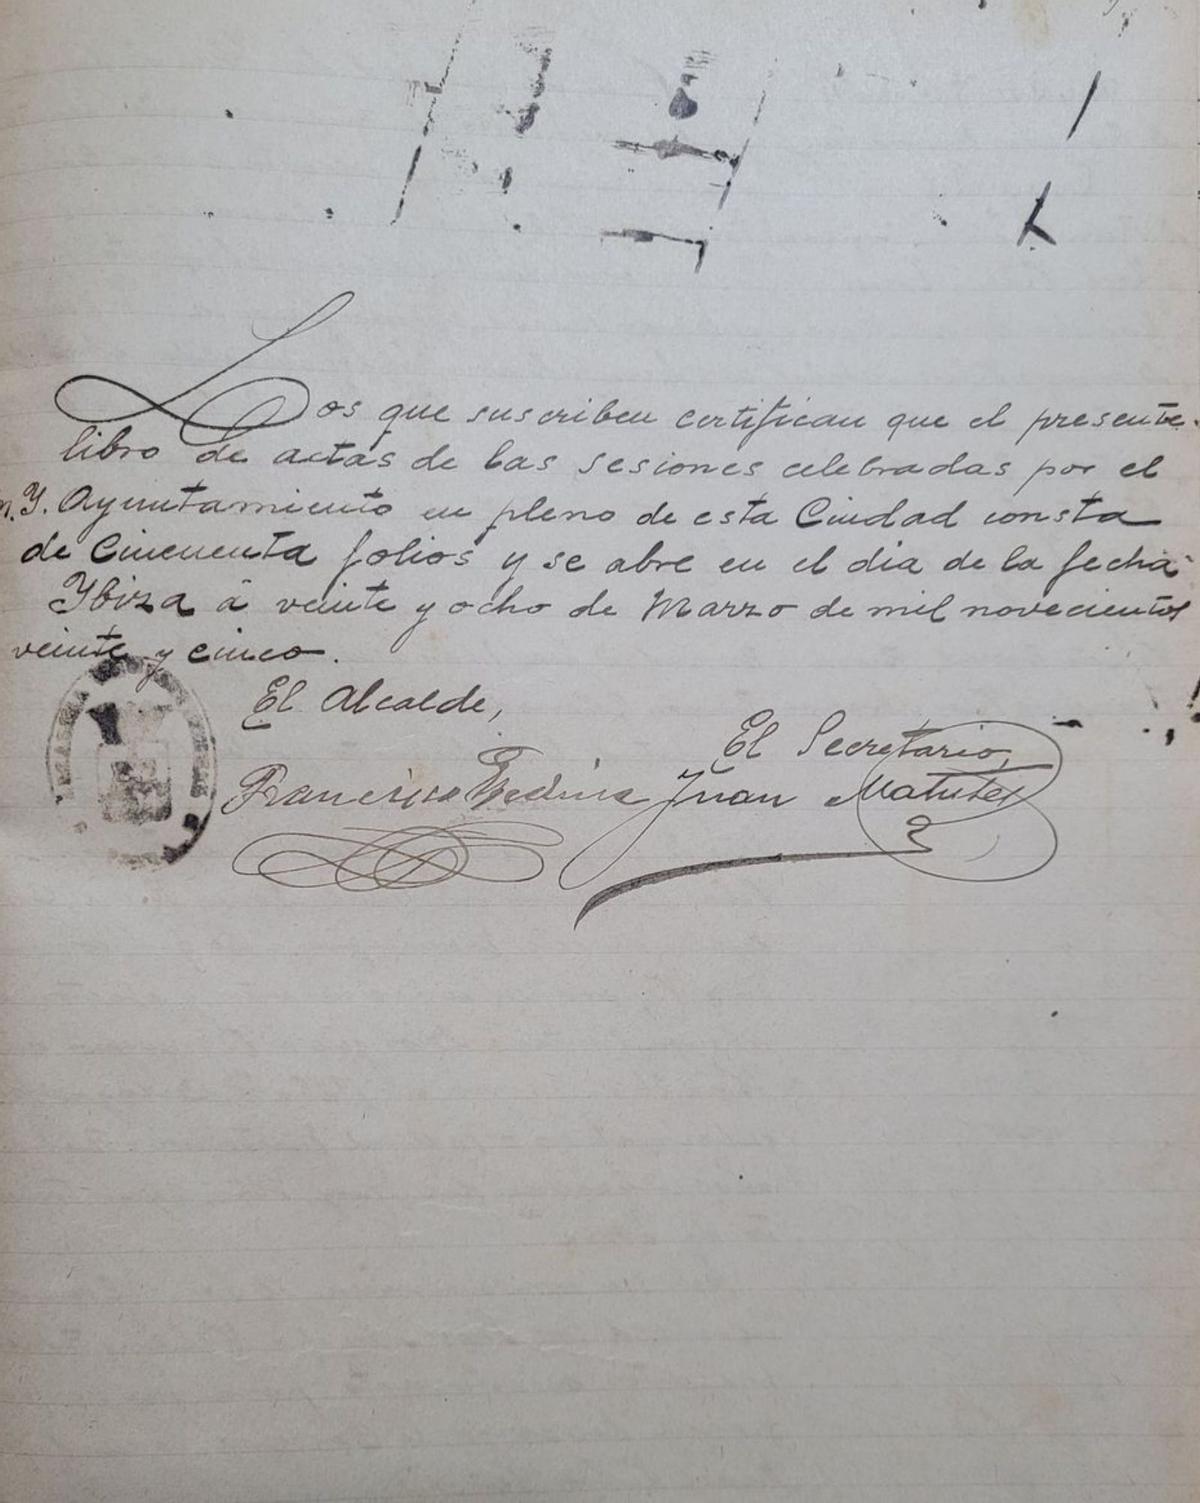 Los que suscriben certifican que el presente
libro de actas de las sesiones celebradas por el
M. Y. Ayuntamiento en pleno de esta Ciudad consta
de Cincuenta folios y se abre en el dia de la fecha
Ybiza á veinte y ocho de Marzo de mil novecientos
veinte y cinco.
El Alcalde,
El Secretario,
Francisco
Juan Matutes